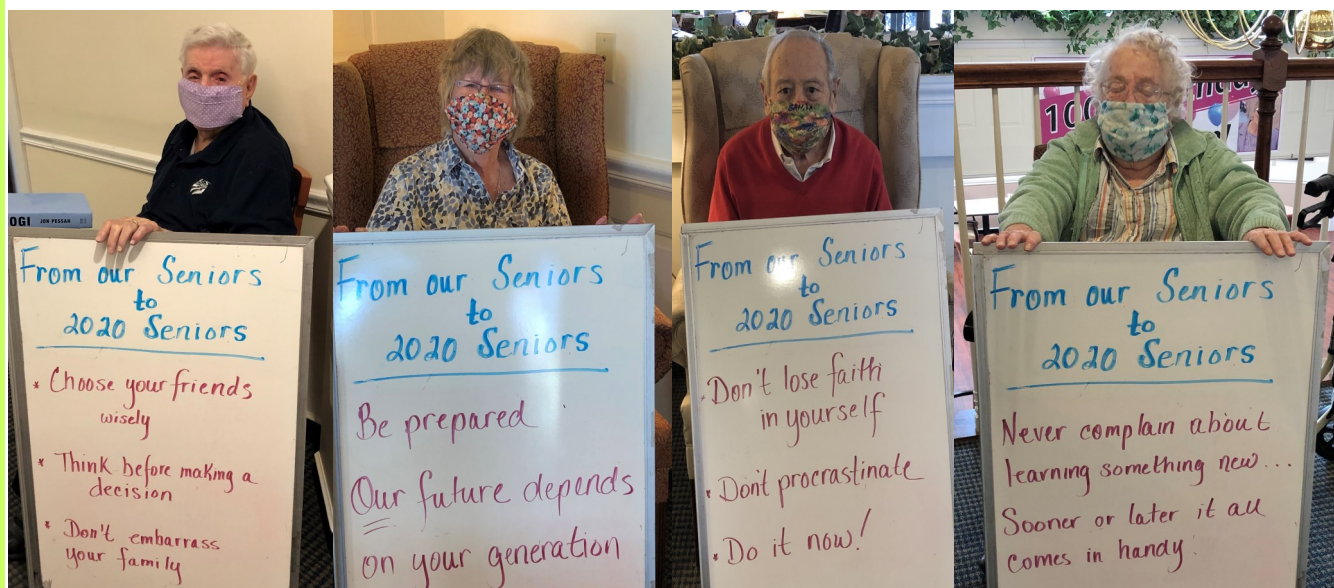 OGI JON PESSAH
From our Seniors
to
2020 Seniors
* Choose your friends
wisely
* Think before making a
decision
* Don't embarrass
your family
From our Seniors
to
2020 Seniors
Be prepared
Our future depends
on your generation
From our Seniors
to
2020 Seniors
Don't lose faith
in yourself
• Don't procrastinate
• Do it now!
100
From our Seniors
to
2020 Seniors
Never complain about
learning something new...
Sooner or later it all
comes in handy.